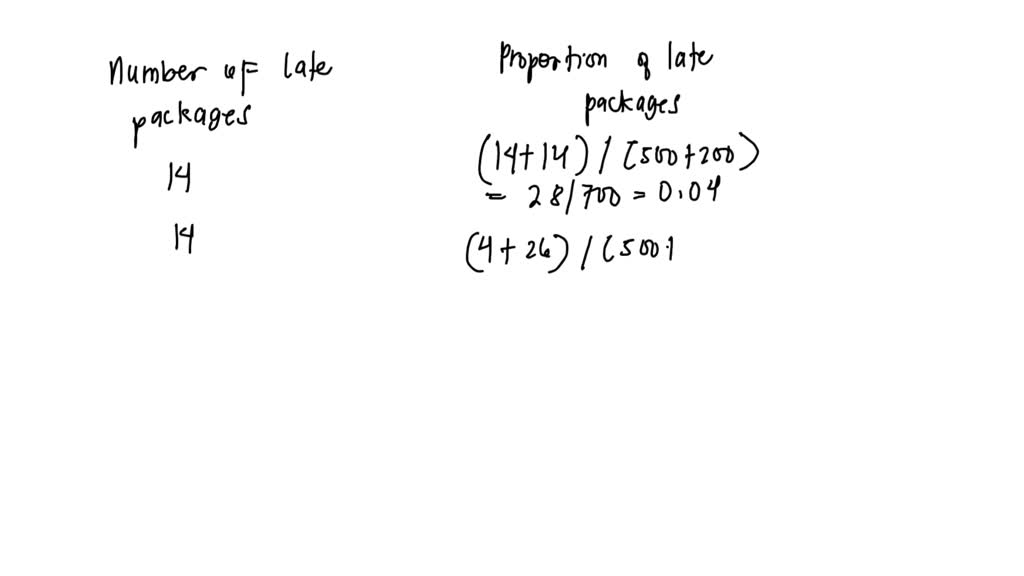 Number of late
packages
14
14
Proportion of late
packages
(14+14) / (500+200)
= 28/700 = 0.04
(4+26) / (500+